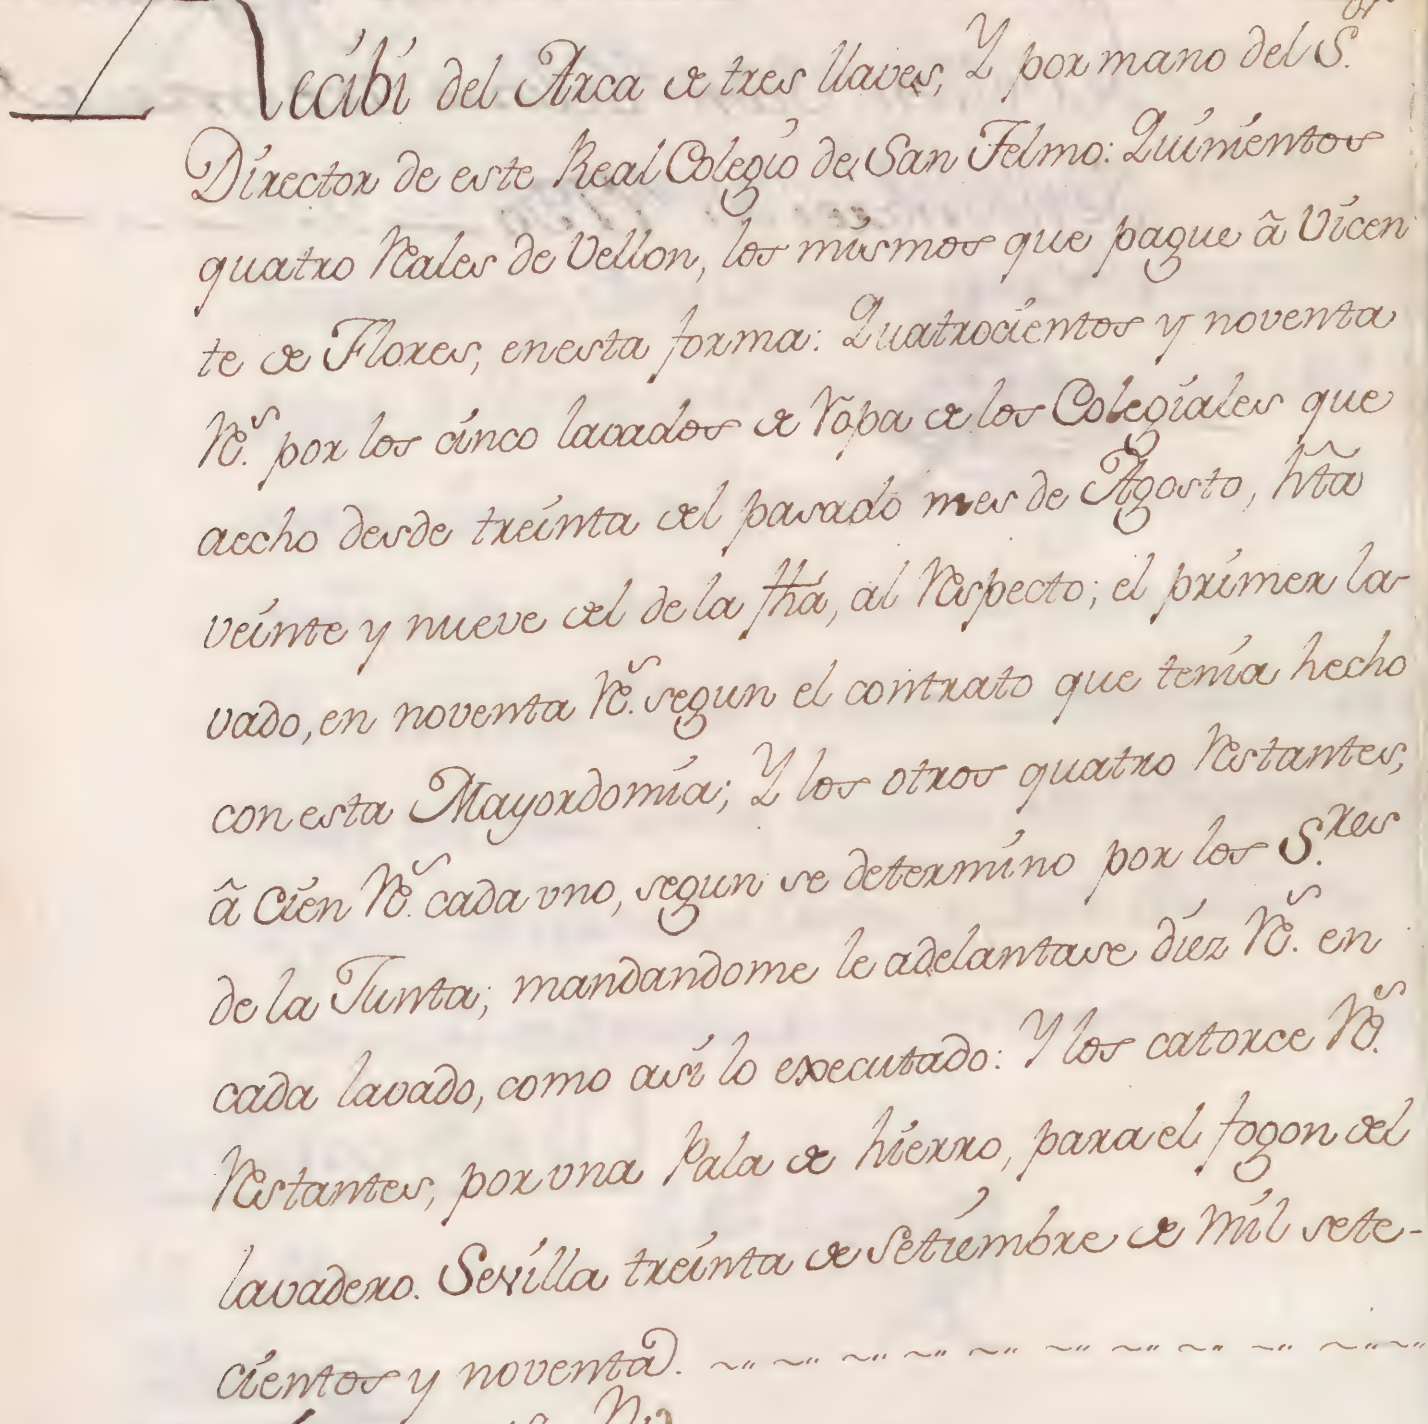 Recibi del Arca de tres llaves, Y por mano del S.or
Director de este Real Colegio de San Telmo: Quinientos
quatro Reales de Vellon, los mismos que pague â Vicen
te de Flores, en esta forma: Quatrocientos y noventa
R.s por los cinco lavados de Ropa de los Colegiales que
aecho desde treinta del pasado mes de Agosto, hta
veinte y nueve del de la fha, al Respecto; el primer la-
vado, en noventa R.s segun el contrato que tenia hecho
con esta Mayordomia; Y los otros quatro Restantes,
â Cien R.s cada vno, segun se determino por los S.res
de la Junta; mandandome le adelantase diez R.s en
cada lavado, como asi lo executado: Y los catorce R.s
Restantes, por vna Pala de hierro, para el fogon del
lavadero. Sevilla treinta de Setiembre de Mil sete-
cientos y noventa.